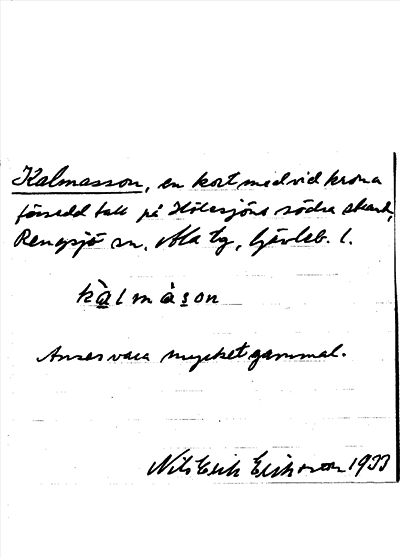 Kalmasson, en kort med vid krona
försedd tall på Hölesjöns södra strand,
Rengsjö sn, Ala tg, Gävleb. l.
kàlmàson
Anses vara mycket gammal.
Nils Erik Eriksson 1933